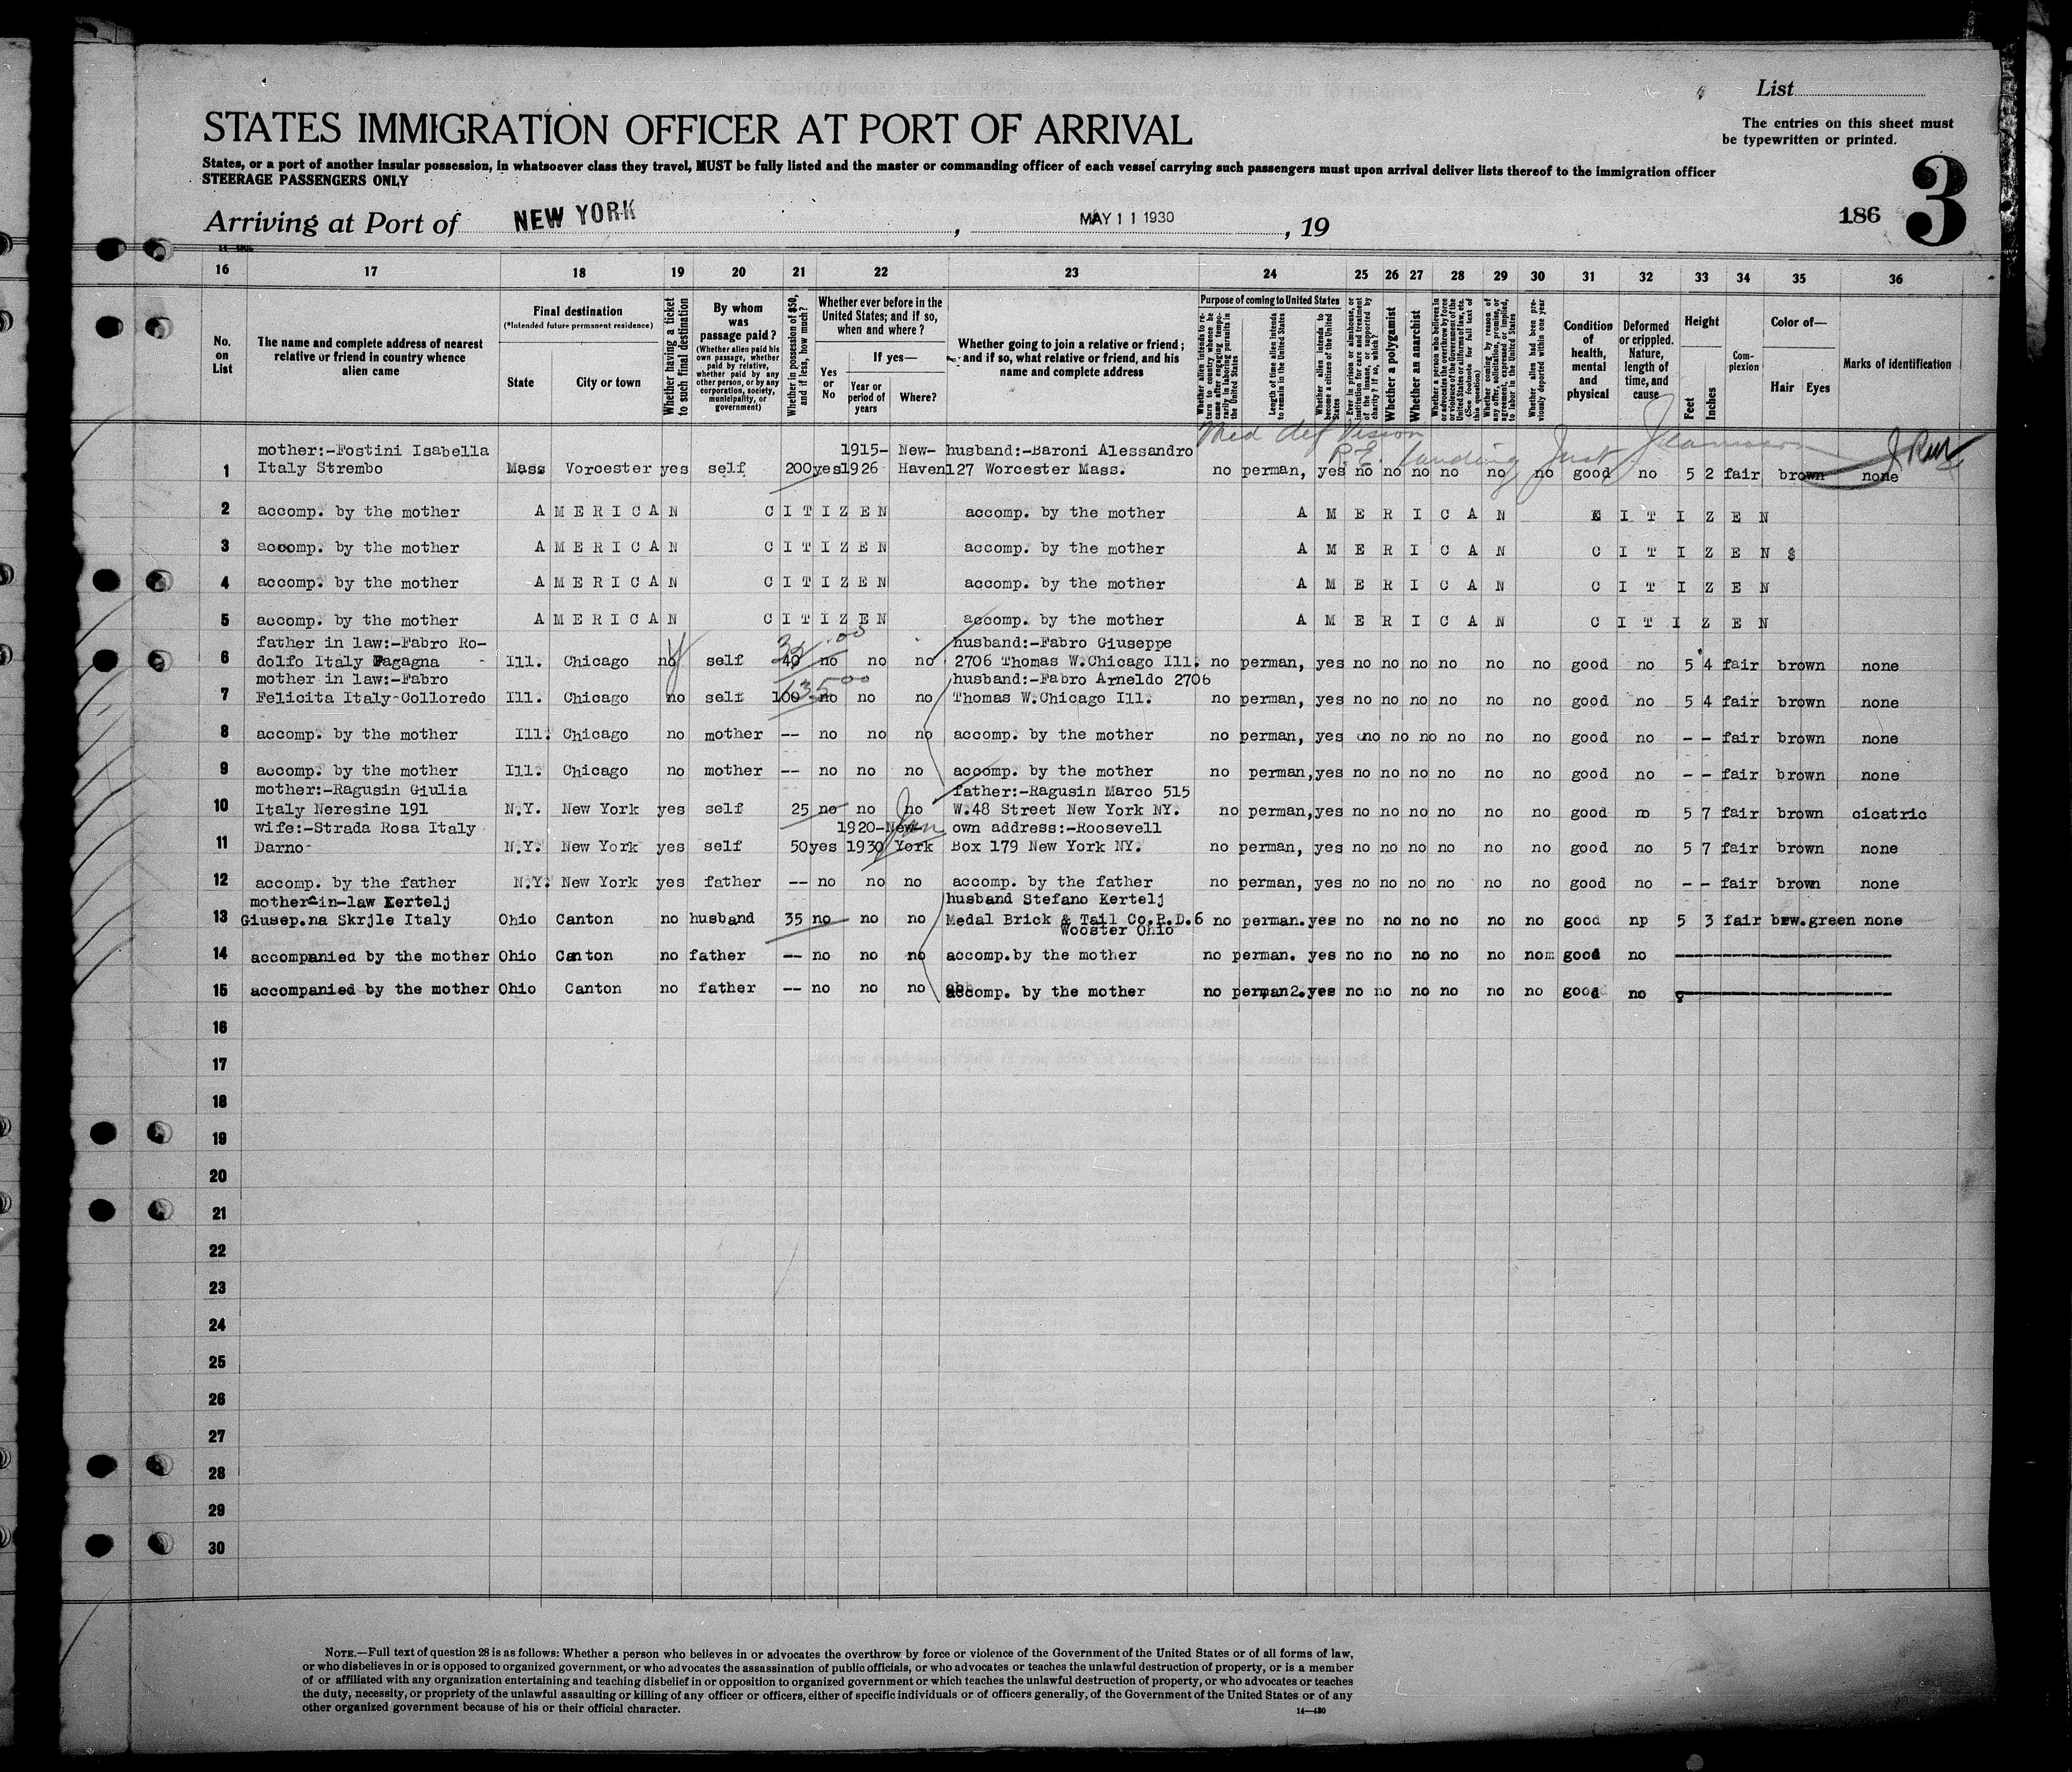 List
STATES IMMIGRATION OFFICER AT PORT OF ARRIVAL
The entries on this sheet must
be typewritten or printed.
States, or a port of another insular possession, in whatsoever class they travel, MUST be fully listed and the master or commanding officer of each vessel carrying such passengers must upon arrival deliver lists thereof to the immigration officer
STEERAGE PASSENGERS ONLY
Arriving at Port of NEW YORK, MAY 11 1930, 19
186 3
16 17 18 19 20 21 22 23 24 25 26 27 28 29 30 31 32 33 34 35 36
No. on List
The name and complete address of nearest relative or friend in country whence alien came
Final destination
(*Intended future permanent residence)
State
City or town
Whether having a ticket to such final destination
By whom was passage paid?
(Whether alien paid his own passage, whether paid by relative, whether paid by any other person, or by any corporation, society, municipality, or government)
Whether in possession of $50, and if less, how much?
Whether ever before in the United States; and if so, when and where?
Yes or No
If yes—
Year or period of years
Where?
Whether going to join a relative or friend; and if so, what relative or friend, and his name and complete address
Purpose of coming to United States
Whether alien intends to return to country whence he came after engaging temporarily in laboring pursuits in the United States
Length of time alien intends to remain in the United States
Whether alien intends to become a citizen of the United States
Ever in prison or almshouse, or institution for care and treatment of the insane, or supported by charity? If so, which?
Whether a polygamist
Whether an anarchist
Whether a person who believes in or advocates the overthrow by force or violence of the Government of the United States or all forms of law, etc. (See footnote for full text of this question)
Whether coming by reason of any offer, solicitation, promise, or agreement, expressed or implied, to labor in the United States
Whether alien had been previously deported within one year
Condition of health, mental and physical
Deformed or crippled. Nature, length of time, and cause
Height
Feet
Inches
Complexion
Color of—
Hair
Eyes
Marks of identification
Med def Vision
mother:-Fostini Isabella 1915- New- husband:-Baroni Alessandro
1 Italy Strembo Mass Vorcester yes self 200 yes 1926 Haven 127 Worcester Mass. no perman, yes no no no no no no good no 5 2 fair brown none
2 accomp. by the mother AMERICAN CITIZEN accomp. by the mother AMERICAN CITIZEN
3 accomp. by the mother AMERICAN CITIZEN accomp. by the mother AMERICAN CITIZEN $
4 accomp. by the mother AMERICAN CITIZEN accomp. by the mother AMERICAN CITIZEN
5 accomp. by the mother AMERICAN CITIZEN accomp. by the mother AMERICAN CITIZEN
father in law:-Fabro Ro- husband:-Fabro Giuseppe
6 dolfo Italy Fagagna - Ill. Chicago no self 40 no no no 2706 Thomas W.Chicago Ill. no perman, yes no no no no no no good no 5 4 fair brown none
mother in law:-Fabro 135 00 husband:-Fabro Arneldo 2706
7 Felicita Italy-Colloredo Ill. Chicago no self 100 no no no Thomas W.Chicago Ill. no perman, yes no no no no no no good no 5 4 fair brown none
8 accomp. by the mother Ill. Chicago no mother -- no no no accomp. by the mother no perman, yes no no no no no no good no - - fair brown none
9 accomp. by the mother Ill. Chicago no mother -- no no no accomp. by the mother no perman, yes no no no no no no good no - - fair brown none
mother:-Ragusin Giulia father:-Ragusin Marco 515
10 Italy Neresine 191 N.Y. New York yes self 25 no no no W.48 Street New York NY. no perman, yes no no no no no no good no 5 7 fair brown cicatric
wife:-Strada Rosa Italy 1920-New- own address:-Roosevell
11 Darno- N.Y. New York yes self 50 yes 1930 York Box 179 New York NY. no perman, yes no no no no no no good no 5 7 fair brown none
12 accomp. by the father N.Y. New York yes father -- no no no accomp. by the father no perman, yes no no no no no no good no - - fair brown none
mother-in-law Kertelj husband Stefano Kertelj
13 Giusep.na Skrjle Italy Ohio Canton no husband 35 no no no Medal Brick & Tail Co.R.D.6 no perman. yes no no no no no no good np 5 3 fair brw.green none
Wooster Ohio
14 accompanied by the mother Ohio Canton no father -- no no no accomp.by the mother no perman. yes no no no no no nom good no
15 accompanied by the mother Ohio Canton no father -- no no no accomp. by the mother no perman2.yes no no no no no no good no
16
17
18
19
20
21
22
23
24
25
26
27
28
29
30
NOTE.—Full text of question 28 is as follows: Whether a person who believes in or advocates the overthrow by force or violence of the Government of the United States or of all forms of law,
or who disbelieves in or is opposed to organized government, or who advocates the assassination of public officials, or who advocates or teaches the unlawful destruction of property, or is a member
of or affiliated with any organization entertaining and teaching disbelief in or opposition to organized government or which teaches the unlawful destruction of property, or who advocates or teaches
the duty, necessity, or propriety of the unlawful assaulting or killing of any officer or officers, either of specific individuals or of officers generally, of the Government of the United States or of any
other organized government because of his or their official character.
14—430